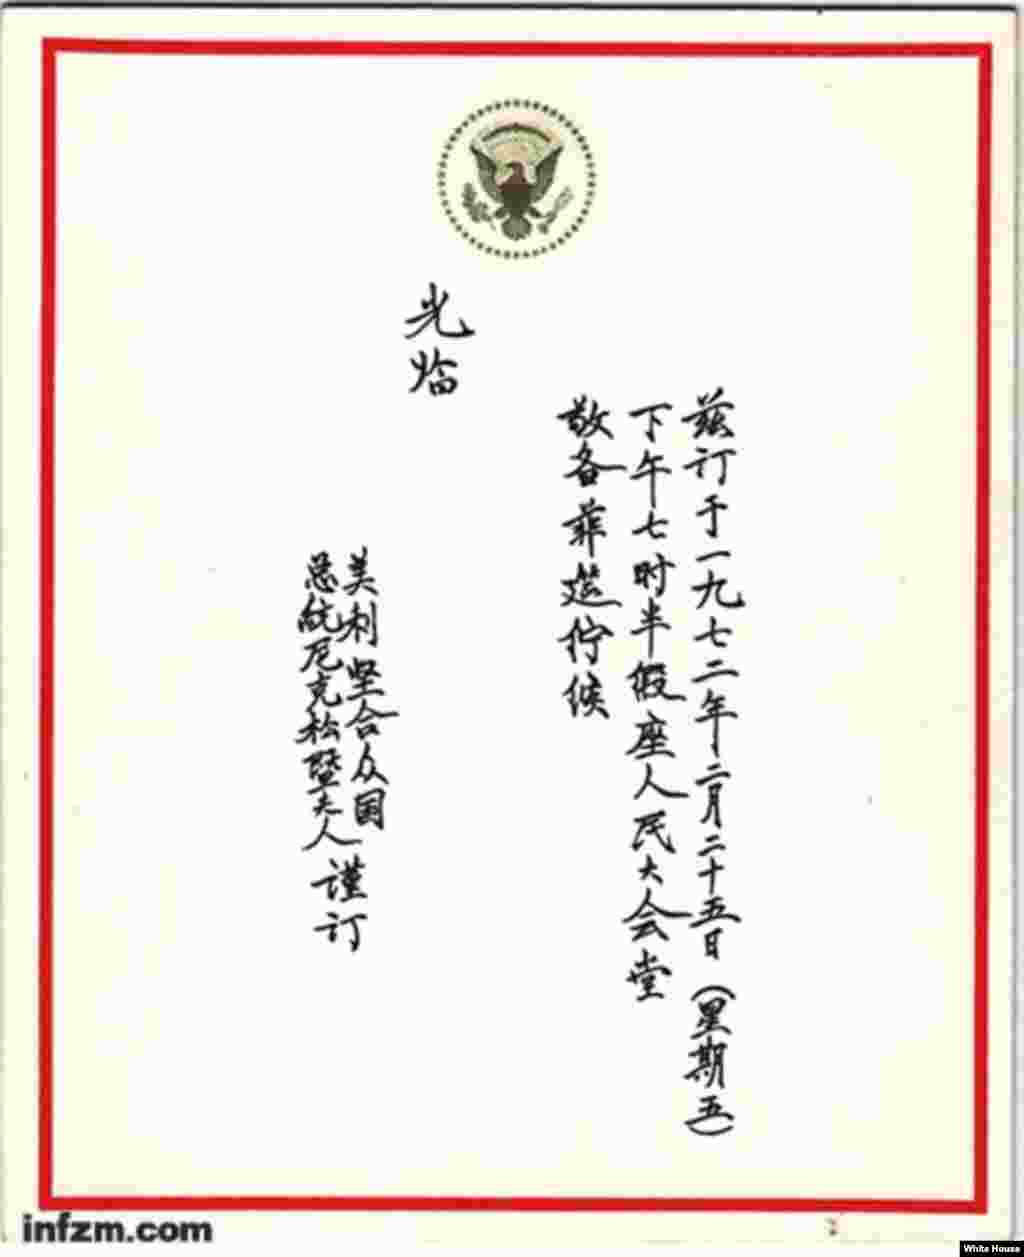 兹订于一九七二年二月二十五日（星期五）
下午七时半假座人民大会堂
敬备菲筵伫候
光临
美利坚合众国
总统尼克松暨夫人 谨订
infzm.com
White House